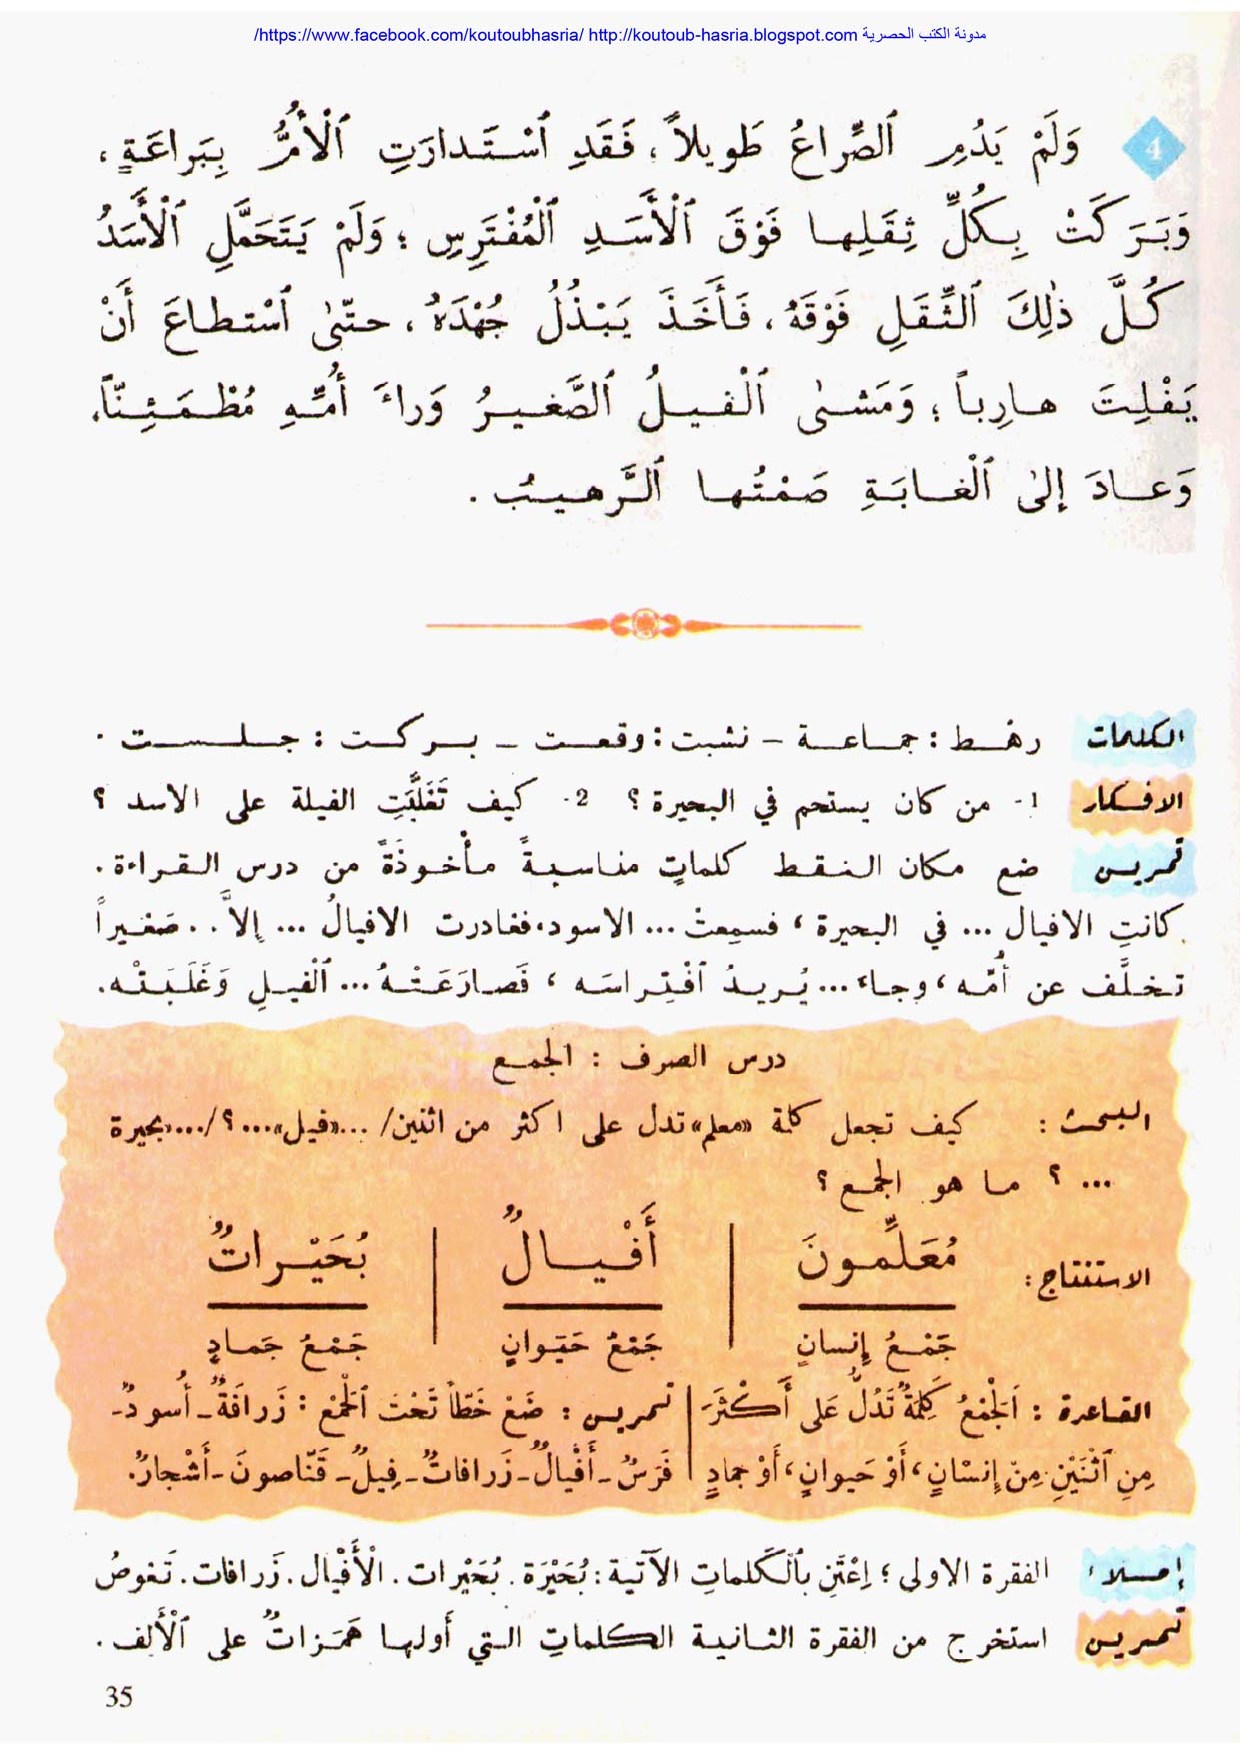 https://www.facebook.com/koutoubhasria/ http://koutoub-hasria.blogspot.com مدونة الكتب الحصرية/
4 وَلَمْ يَدُمِ ٱلصِّراعُ طَويلاً، فَقَدِ ٱسْتَدارَتِ ٱلْأُمُّ بِبَراعَةٍ،
وَبَرَكَتْ بِكُلِّ ثِقَلِها فَوْقَ ٱلْأَسَدِ ٱلْمُفْتَرِسِ ؛ وَلَمْ يَتَحَمَّلِ ٱلْأَسَدُ
كُلَّ ذٰلِكَ ٱلثِّقَلِ فَوْقَهُ، فَأَخَذَ يَبْذُلُ جُهْدَهُ، حتّىٰ ٱسْتطاعَ أَنْ
يَفْلِتَ هارِباً ؛ وَمَشىٰ ٱلْفيلُ ٱلصَّغيرُ وَراءَ أُمِّهِ مُطْمَئِنّاً،
وَعادَ إِلىٰ ٱلْغابَةِ صَمْتُها ٱلرَّهيبُ.
الكلمات رهْط : جماعة - نشبت : وقعت - بركت : جلست .
الافكار 1- من كان يستحم في البحيرة ؟ 2- كيف تَغَلَّبَتِ الفيلة على الاسد ؟
تمرين ضع مكان النقط كلماتٍ مناسبةً مأخوذَةً من درس القراءة.
كانتِ الافيال ... في البحيرة ، فسمِعتْ ... الاسود، فغادرت الافيالُ ... إلاَّ . . صَغيراً
تخلَّف عن أُمِّه ، وجاء ... يُريدُ ٱفْتِراسَه ، فَصارَعَتْهُ ... ٱلْفيلِ وَغَلَبَتْه.
درس الصرف : الجمع
البحث : كيف تجعل كلمة «معلم» تدل على اكثر من اثنين/ ...«فيل»... ؟/...،بحيرة
... ؟ ما هو الجمع ؟
الاستنتاج : مُعَلِّمونَ | أَفْيالٌ | بُحَيْراتٌ
جَمْعُ إِنسانٍ جَمْعُ حَيَوانٍ جَمْعُ جَمادٍ
القاعدة : اَلْجَمْعُ كَلِمَةٌ تَدُلُّ عَلى أَكْثَرَ
مِنِ ٱثْنَيْنِ مِنْ إِنْسَانٍ، أَوْ حَيوانٍ، أَوْ جمادٍ
تمرين : ضَعْ خَطّاً تَحْتَ ٱلْجَمْعِ : زَرافَةٌ - أُسودٌ -
فَرَسٌ - أَفْيالٌ - زَرافاتٌ - فِيلٌ - قَنّاصونَ - أَشْجارٌ.
إملاء الفقرة الاولى ؛ اِعْتَنِ بِٱلْكَلماتِ الآتية : بُحَيْرَة . بُحَيْرات . الْأَفْيال . زَرافات . تَغوصُ
تمرين استخرج من الفقرة الثانية الكلماتِ التي أَولها هَمَزاتٌ على ٱلْأَلِف .
35